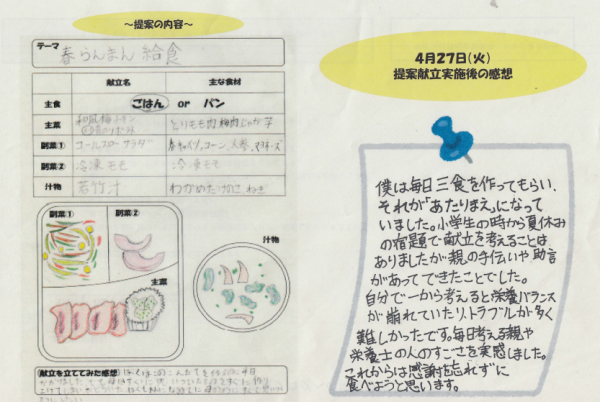 ～提案の内容～
テーマ
春らんまん給食
献立名 主な食材
主食 ごはん or パン
主菜 とりモモ肉 梅肉 じゃが芋
副菜① コールスローサラダ 春キャベツ、コーン、人参、マヨネーズ
副菜② 冷凍モモ 冷凍モモ
汁物 若竹汁 わかめ たけのこ ねぎ
副菜①
副菜②
主菜
汁物
(献立を立ててみた感想)
4月27日(火)
提案献立実施後の感想
僕は毎日三食を作ってもらい、
それが「あたりまえ」になって
いました。小学生の時から夏休み
の宿題で献立を考えることは
ありましたが親の手伝いや助言
があってできたことでした。
自分で一から考えると栄養バランス
が崩れていたりトラブルが多く
難しかったです。毎日考える親や
栄養士の人のすごさを実感しました。
これからは感謝を忘れずに
食べようと思います。